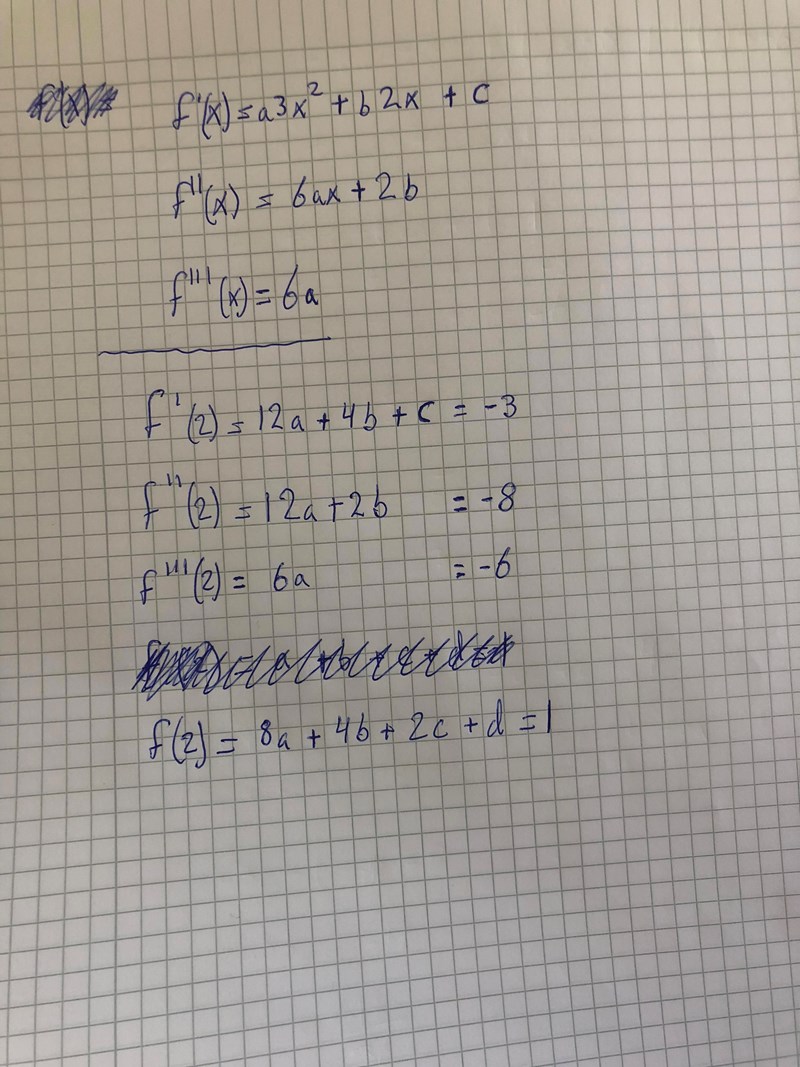 f'(x) = a3x² + b2x + c
f''(x) = 6ax + 2b
f'''(x) = 6a
f'(2) = 12a + 4b + c = -3
f''(2) = 12a + 2b = -8
f'''(2) = 6a = -6
f(2) = 8a + 4b + 2c + d = 1